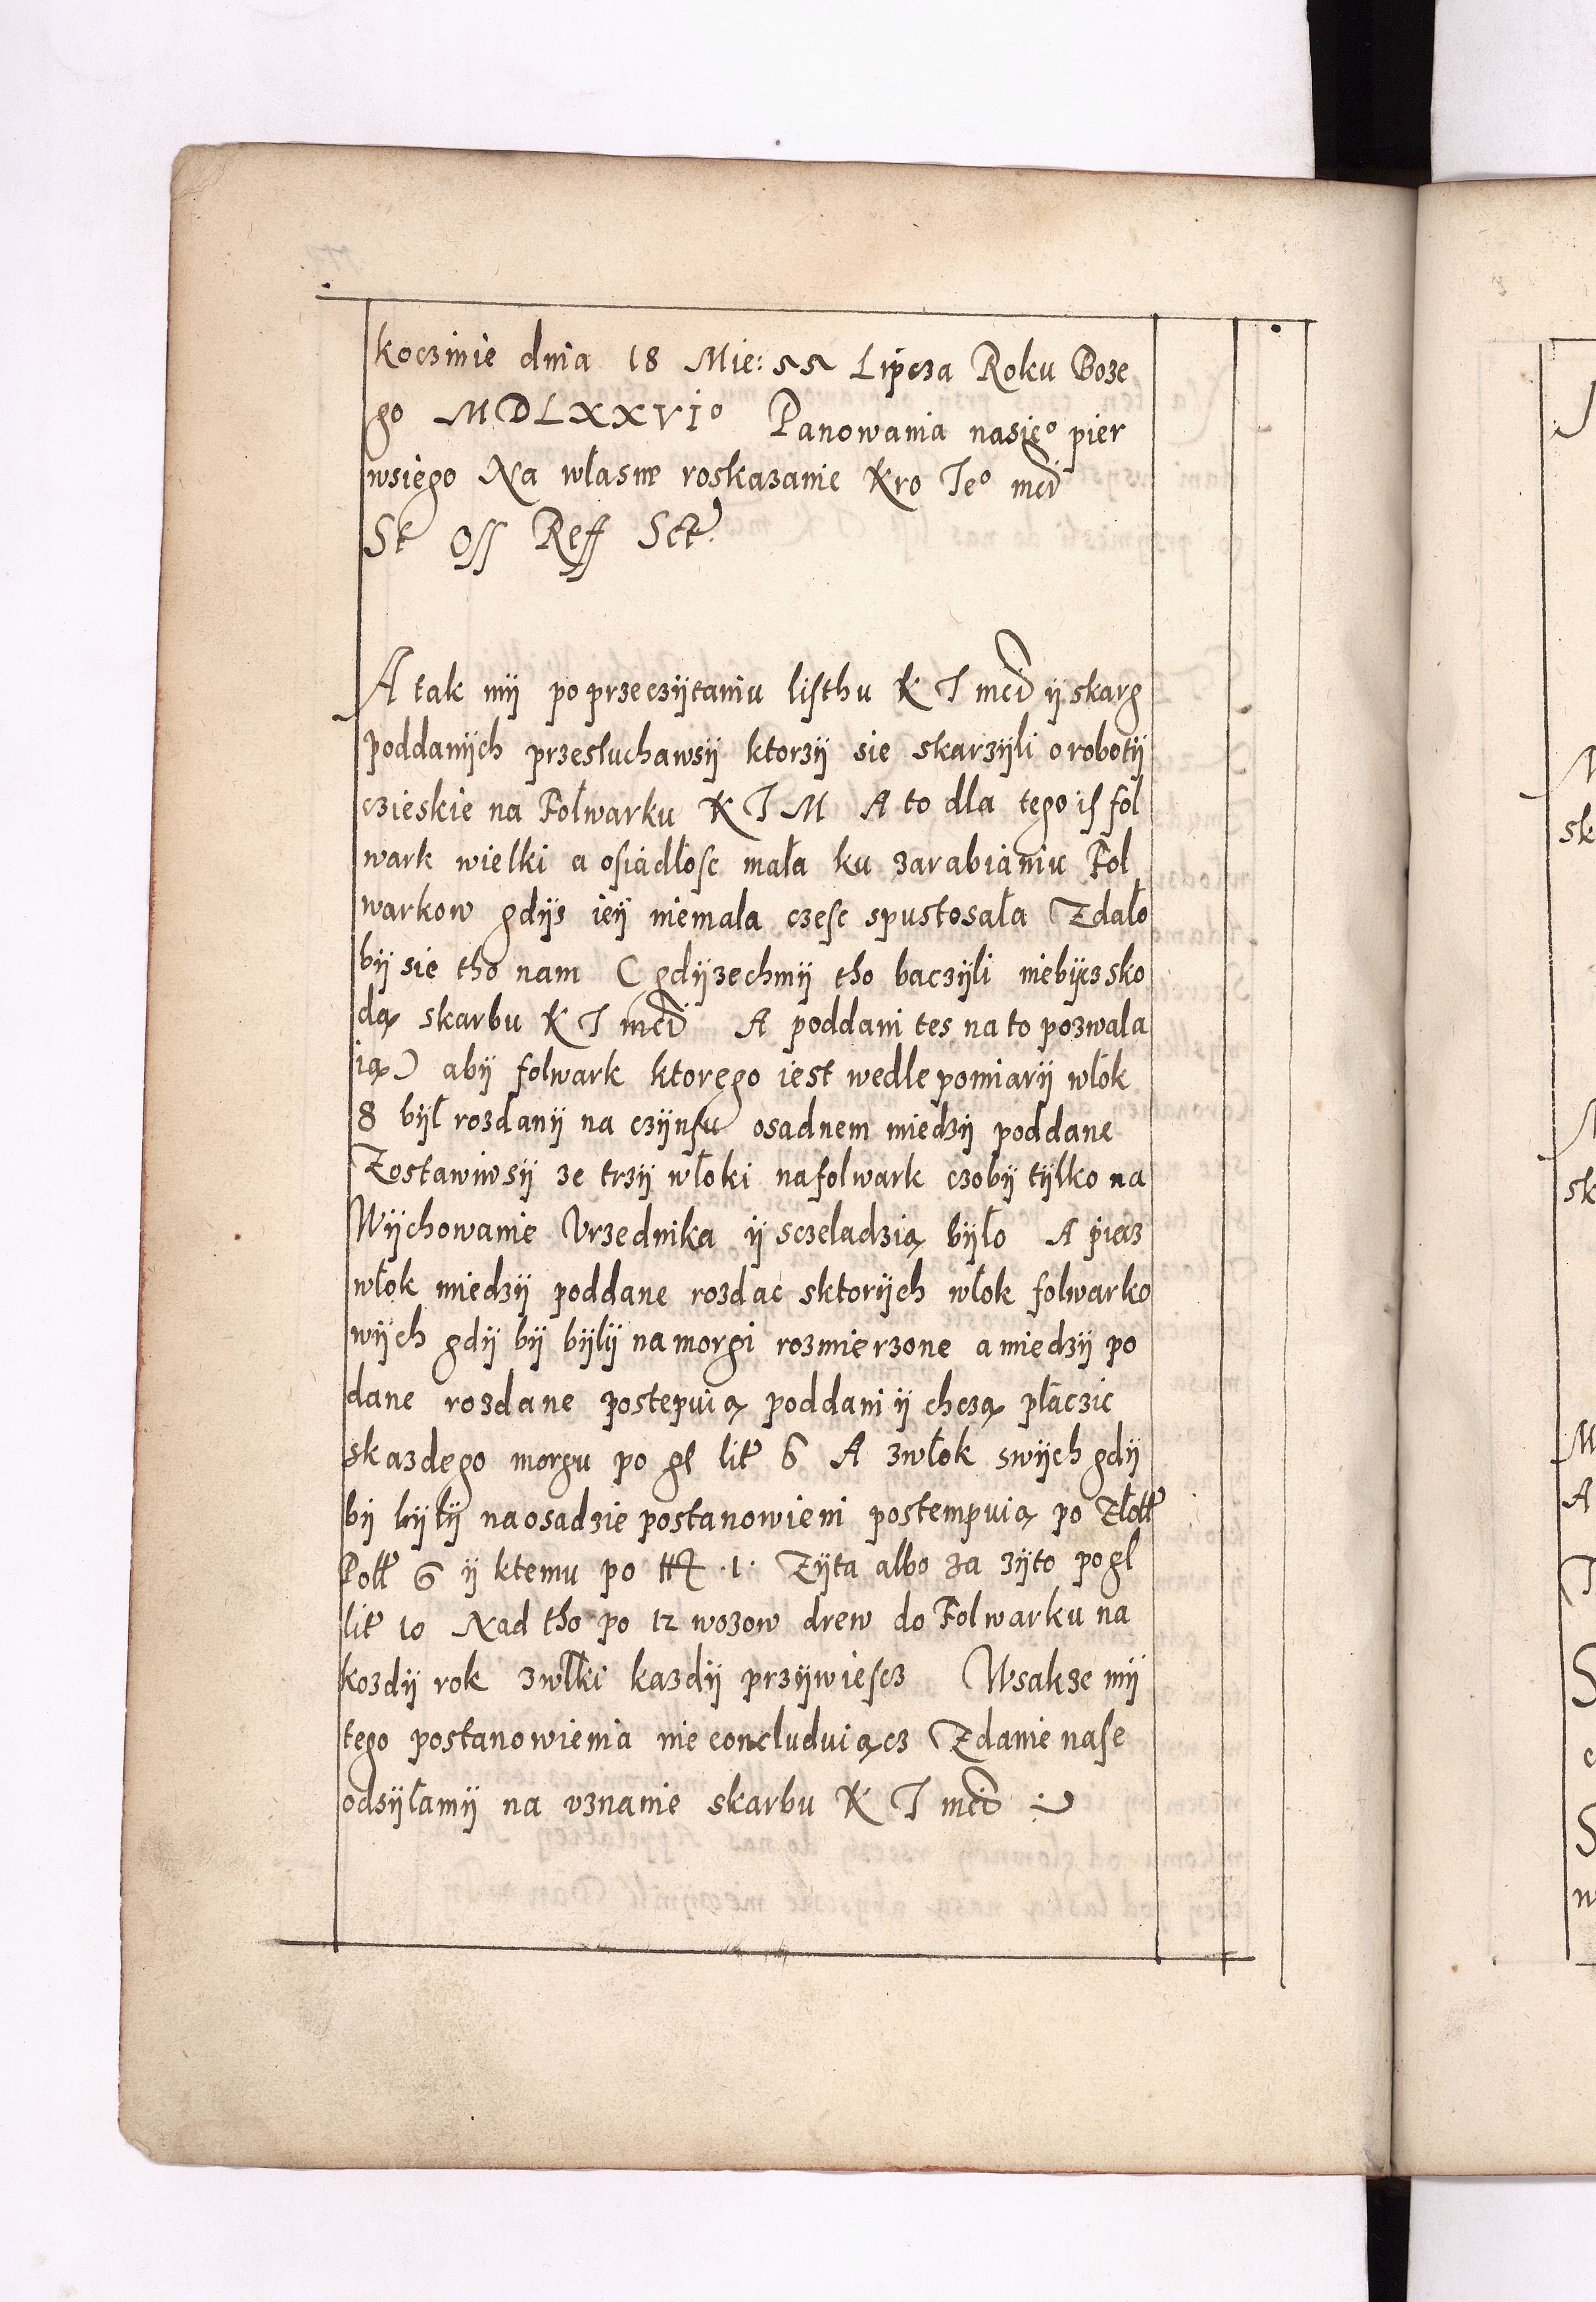 koczinie dnia 18 Mie: Lipcza Roku Boze
go MDLXXVIº Panowania nasieº pier
wsiego Na własne roskazanie Kro Jeº mci
St Oss Reff Sct
A tak mij po przeczijtaniu listhu K J mci ij skarg
poddanijch przesłuchawsij ktorzij sie skarzijli o robotij
czieskie na Folwarku K J M A to dla tego iſ fol
wark wielki a osiadłosc mała ku zarabianiu Fol
warkow gdijs ieij niemala czesc spustosała Zdało
bij sie tho nam ( gdijzechmij tho baczijli niebijcz sko
dą skarbu K J mci A poddani tes na to pozwala
ią) abij folwark ktorego iest wedle pomiarij włok
8 bijł rozdanij na czijnsu osadnem miedzij poddane
Zostawiwsij ze trzij włoki na folwark czobij tijlko na
Wijchowanie Vrzednika ij sczeladzią bijło A piecz
włok miedzij poddane rozdac sktorijch włok folwarko
wijch gdij bij bijlij na morgi rozmierzone a miedzij po
dane rozdane postepuią poddani ij chczą płaczic
skazdego morgu po gł lit 6 A zwłok swijch gdij
bij bijlij na osadzie postanowieni postempuią po Złott
Poll 6 ij ktemu po .1. Zijta albo za zijto po gł
lit 10 Nad tho po 12 wozow drew do Folwarku na
kozdij rok zwłki kazdij przijwiescz Wsakze mij
tego postanowienia nie concluduiącz Zdanie nase
odsijłamij na vznanie skarbu K J mci